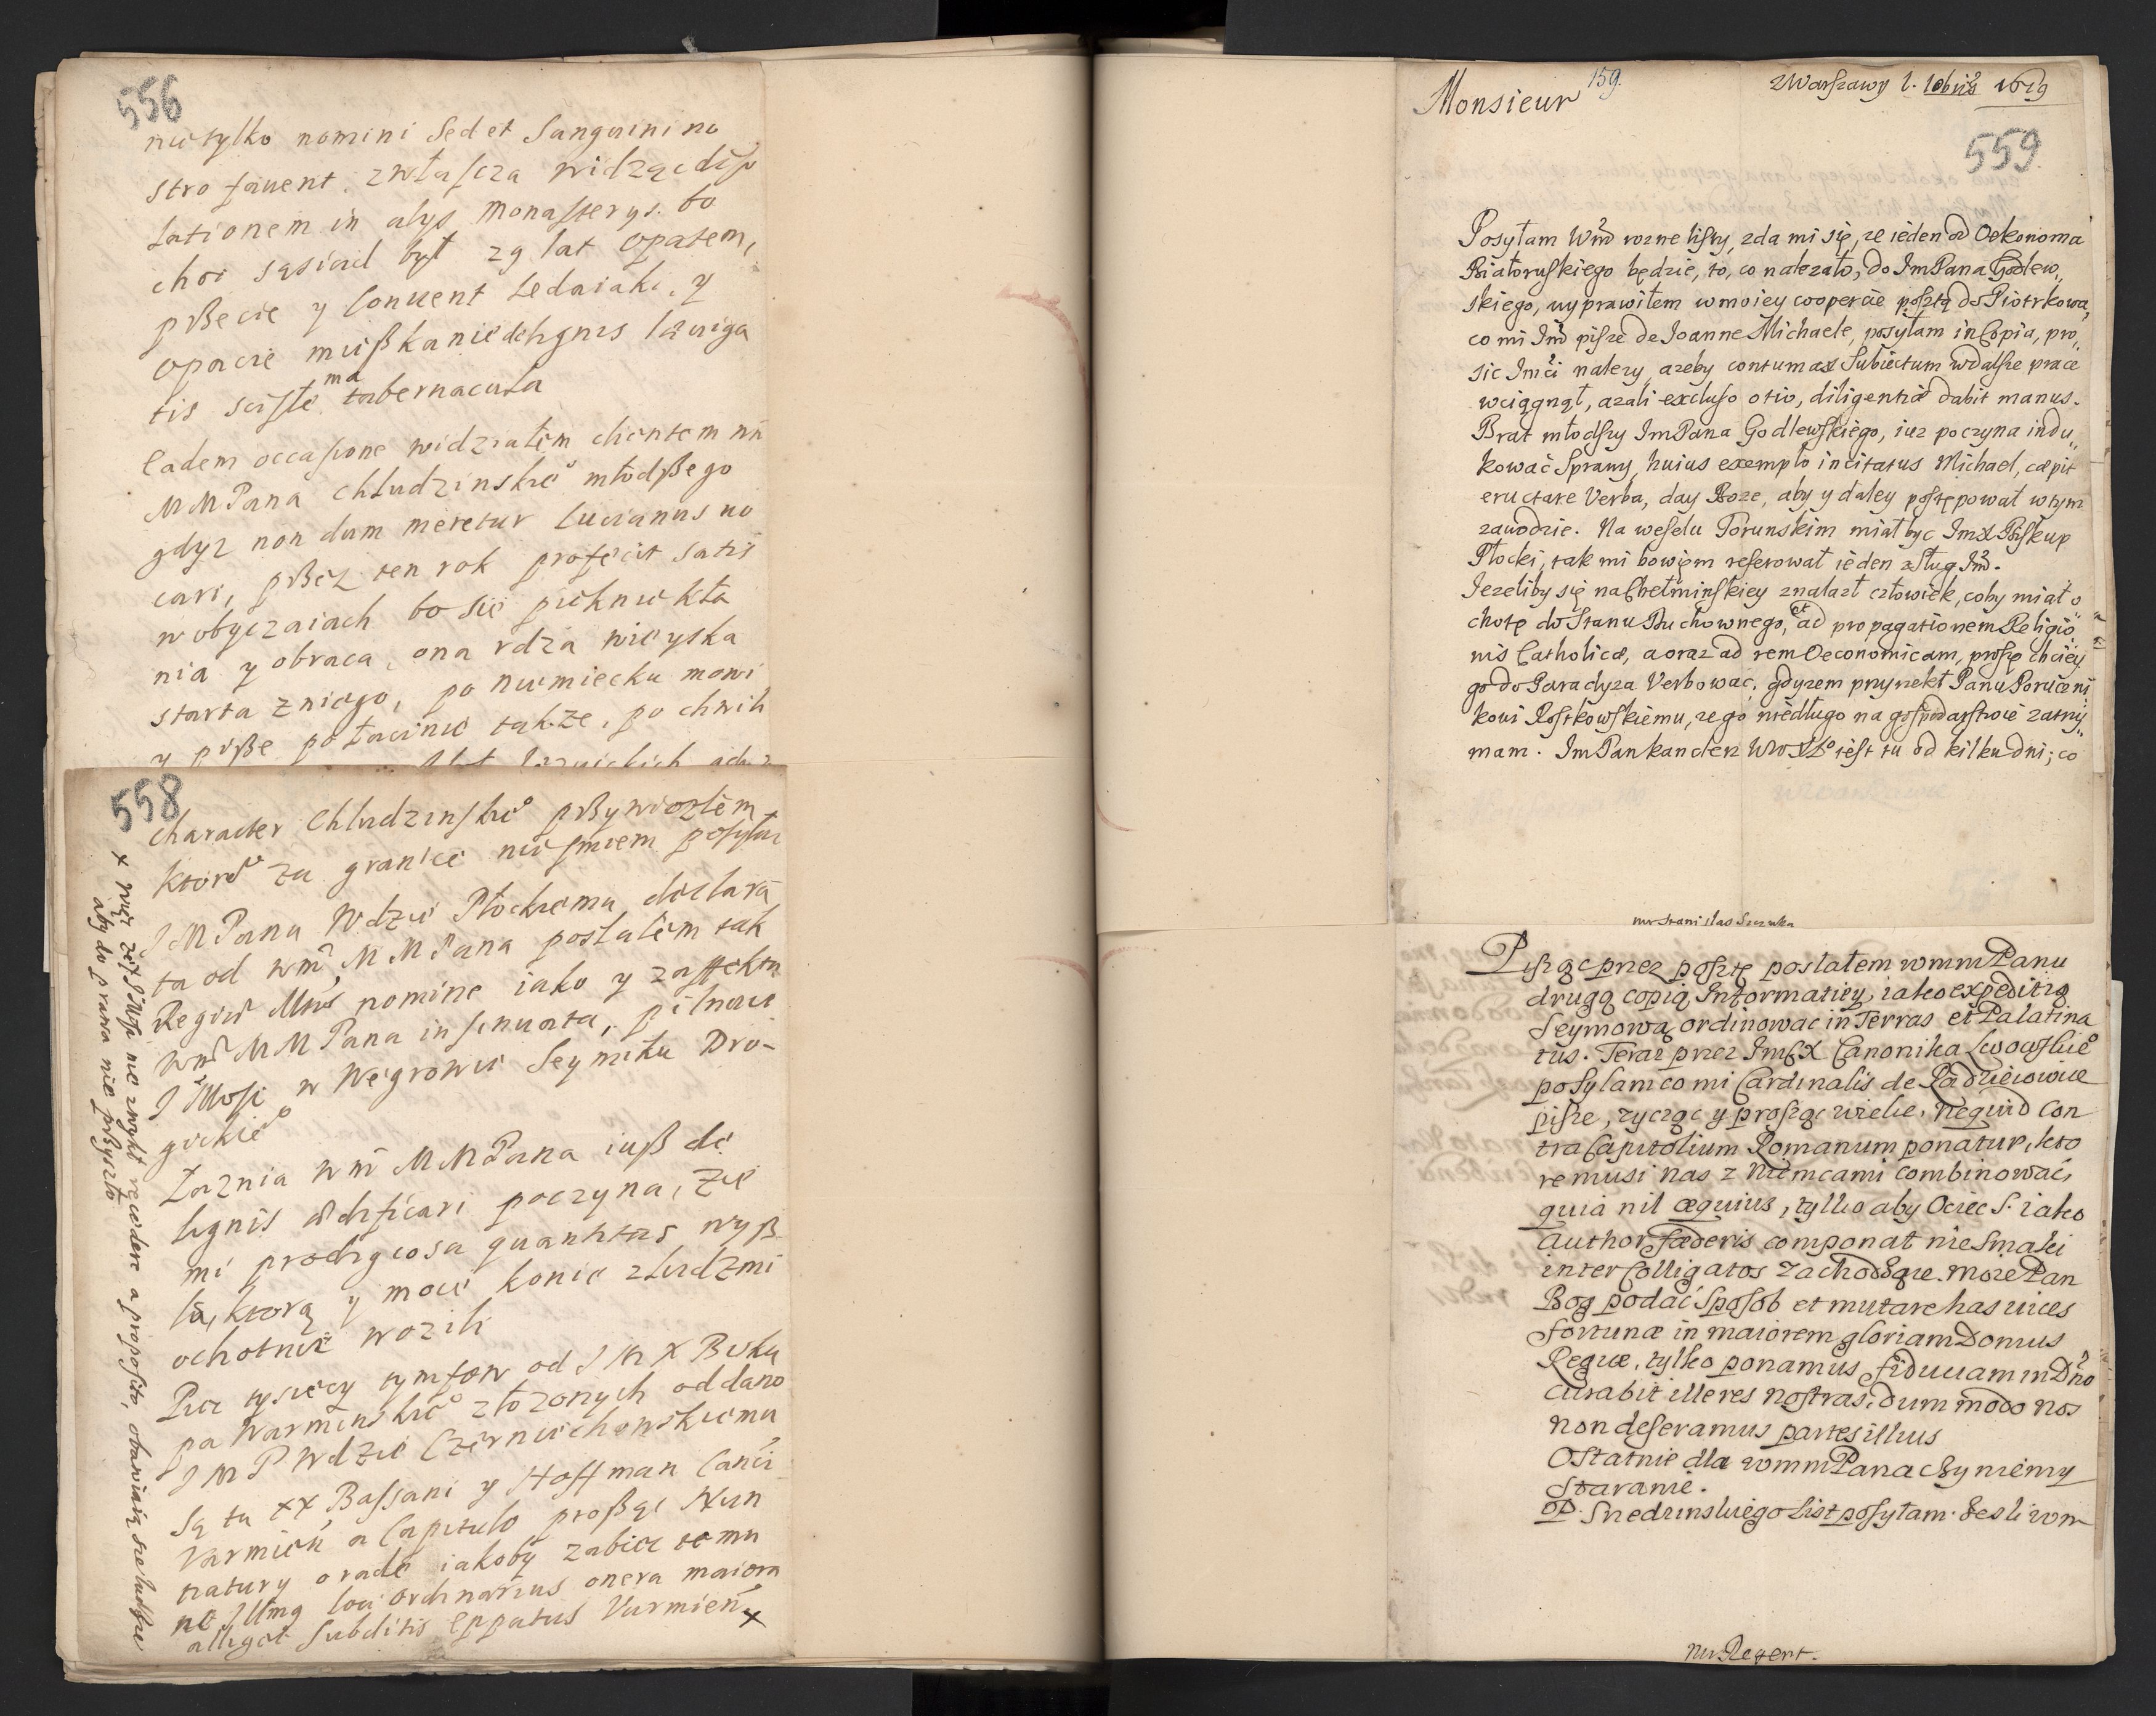 556
nietylko nomini Sed et Sanguini no
stro favent. zwłaszcza widząc diso
lationem in alys Monasterys. bo
choc sąsiad był 29 lat Opatem,
pßecie y Convent Ledaiaki, y
Opacie mießkanie de lignis laeviga
tis sciste ma tabernacula
Eadem occasione widziałem clientem
MMPana Chludzinskie młodßego
gdyz non dum meretur Lucianus vo
cari, pßez ten rok profecit satis
w obyczaiach bo sie pieknie kła
nia y obraca, ona rdza wieyska
starta z niego, po niemiecku mowi
y piße po łacinie takze, po chwili
558
character Chludzinskie pßywiozłem
ktore za granice nie smiem posyłac
JMPanu Wdzie Płockiemu declara
ta od wm MMPana posłałem tak
Regiae Mtis nomine iako y z affektu
wm MMPana insinuata, pilnuie
JMosc w Węgrowie Seymiku Dro-
gickie
Łaznia wm MMPana iuß de
lignis aedificari poczyna, zie
mi prodigiosa quantitas wyß
ła, ktorą y moie konie z ludzmi
ochotnie wozili
Piec tysiecy tymfow od JMX Bisku
pa Warminskie złozonych oddano
JMP Wdzie Czerniechowskiemu
Są tu XX Bassani y Hoffman Canci
Varmien a Capitulo proßąc Nun
natury o rade iakoby zabiec temu
ne Illmg loci ordinarius onera maiora
alliget subditis Eppatus Varmien x
x więc zeJMosc nie zwykł recedere a proposito, obawiaią sie ludzie
aby do prawa nie pßyszło
Monsieur
159.
z Warszawy
1679
559
Posyłam Wm rozne listy, zda mi się, ze ieden od Oekonoma
Białoruskiego będzie, to, co nalezało, do ImPana Godlew„
skiego, wyprawiłem w moiey coopercie posztą do Piotrkowa,
co mi Im pisze de Joanne Michaele, posyłam in Copia, pro„
sic Imci nalezy, azeby contumax Subiectum w dalsze prace
wciągnął, azali excluso otio, diligentiae dabit manus.
Brat młodszy ImPana Godlewskiego, iuz poczyna indu„
kować Sprawy, huius exemplo incitatus Michael, caepit
eructare Verba, day Boze, aby y daley postępował w tym
zawodzie. Na weselu Torunskim miał byc ImX Biskup
Płocki, tak mi bowiem referował ieden z Sług Im.
Jezeliby się na Chełminskiey znalazł człowiek, coby miał o
chotę do Stanu Duchownego, et ad propagationem Religio„
nis Catholicae, a oraz ad rem Oeconomicam, proszę chciey
go do Paradyza Verbowac. gdyzem przyrzekł Panu Poruczni
kowi Rostkowskiemu, ze go niedługo na gospodarstwie zatrzy„
mam. ImPan Kanclerz WWXL iest tu od kilku dni; co
mr Stanislas Szczuka
Pisząc przez posztę posłałem wmmPanu
drugą copią Informatiey, iako expeditią
Seymową ordinowac in Terras et Palatina
tus. Teraz przez ImCX Canonika Lwowskie
posylam co mi Cardinalis de Radzieiowice
pisze, zycząc y prosząc wielce, nequid con
tra Capitolium Romanum ponatur, kto
re musi nas z Niemcami combinować,
quia nil aequius, tylko aby Ociec S. iako
Author faederis componat niesmaki
inter Colligatos zachodzące. Moze Pan
Bog podać sposob et mutare has vices
fortunae in maiorem gloriam Domus
Regiae, tylko ponamus fiduciam in Dno
curabit ille res nostras, dummodo nos
non deseramus partes illius
Ostatnie dla wmmPana czyniemy
staranie.
list posyłam. Jesli wm
mr Regent.